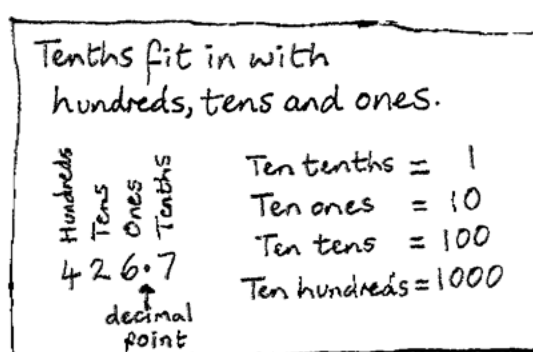 Tenths fit in with
hundreds, tens and ones.
Hundreds
Tens
Ones
Tenths
426.7
decimal
point
Ten tenths = 1
Ten ones = 10
Ten tens = 100
Ten hundreds = 1000